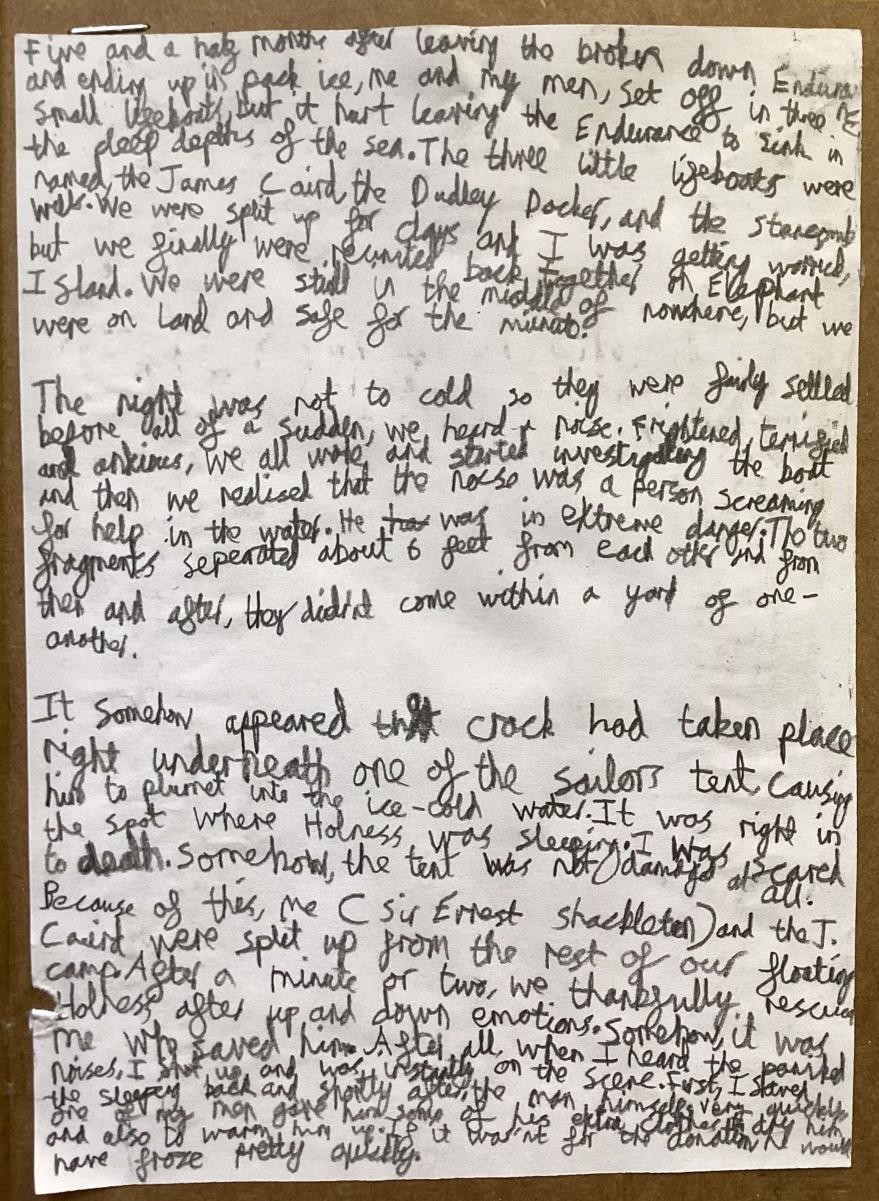 Five and a half months after leaving the broken down Endurance
and ending up in pack ice, me and my men, set off in three
small lifeboats, but it hurt leaving the Endurance to sink in
the deep depths of the sea. The three little lifeboats were
named, the James Caird, the Dudley Docker, and the stancomb
wills. We were split up for days and I was getting worried,
but we finally were reunited back together on Elephant
Island. We were still in the middle of nowhere, but we
were on land and safe for the
The night was not to cold so they were fairly settled
before all of a sudden, we heard a noise. Frightened, terrified
and ankious, we all woke and started investigating the boat
and then we realised that the noise was a person screaming
for help in the water. He was in extreme danger. The two
fragments seperated about 6 feet from each other and from
then and after, they didn't come within a yard of one-
another.
It somehow appeared that crack had taken place
right underneath one of the sailors tent, causing
him to plumet into the ice-cold water. It was right in
the spot where Holness was sleeping. I was scared
to death. Somehow, the tent was not damage at all.
Because of this, me (sir Ernest shackleton) and the J.
Caird were split up from the rest of our floating
camp. After a minute or two, we thankfully rescued
Holness after up and down emotions. Somehow, it was
me who saved him. After all, when I heard the panicked
noises, I shot up and was instantly on the scene. First, I
the sleeping back and shortly after, the man himself. very quickly,
one of my men gave him some of his extra clothes to dry him
and also to warm him up. If it was'nt for the donation he would
have froze pretty quickly.